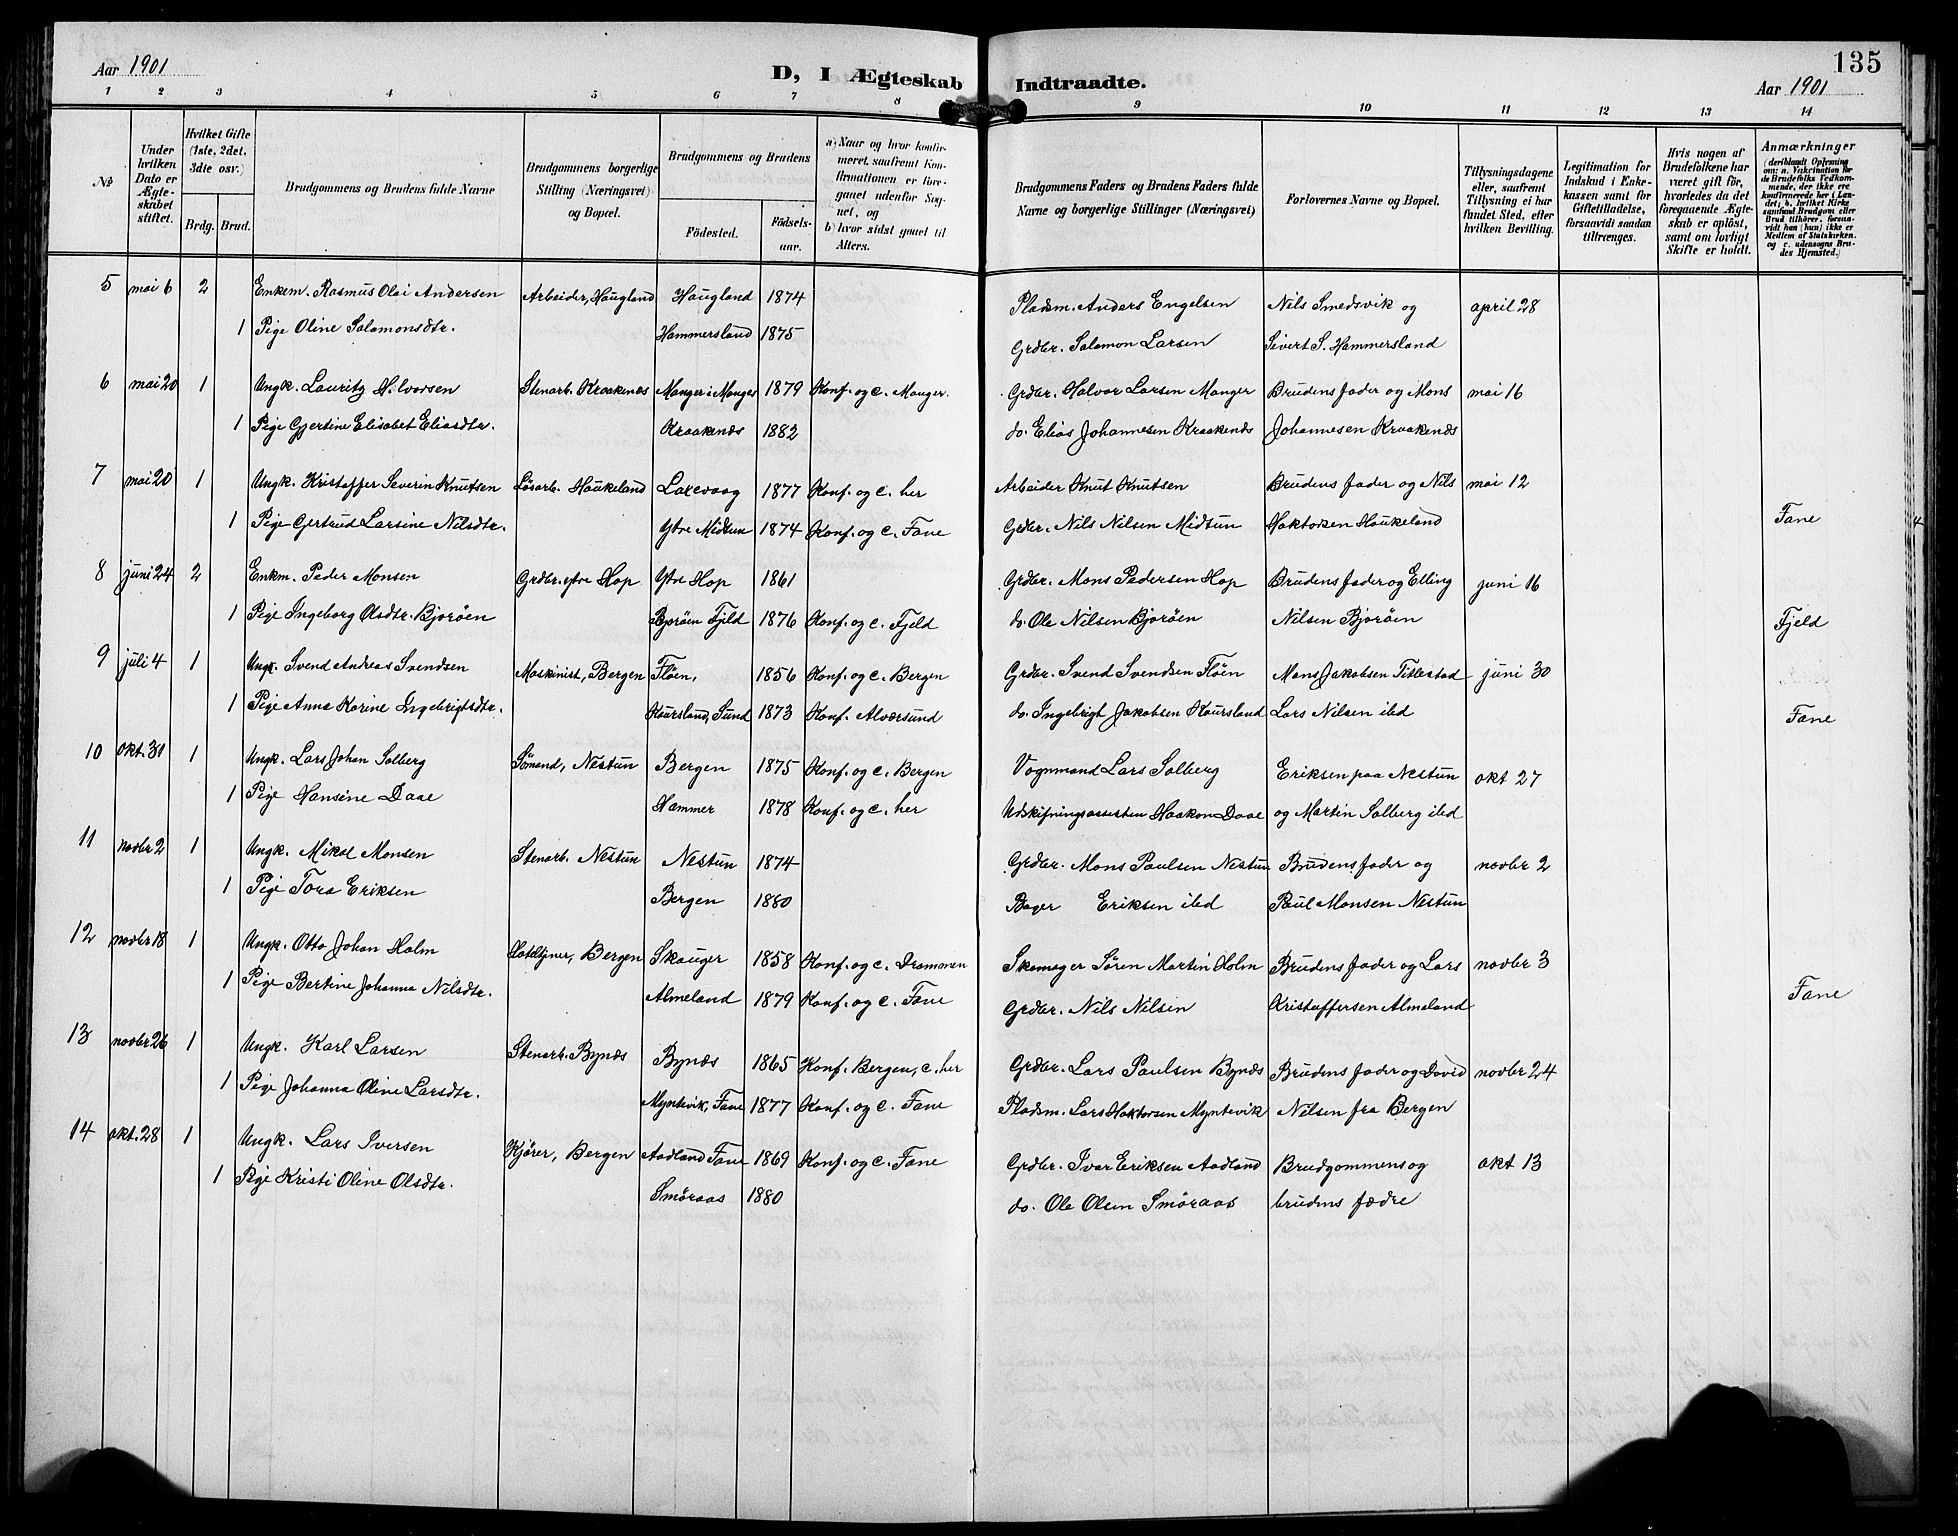 Aar 1901
D, I Ægteskab Indtraadte.
135
Aar 1901
1 2 3 4 5 6 7 8 9 10 11 12 13 14
No
Under hvilken Dato er Ægteskabet stiftet.
Hvilket Gifte (1ste, 2det, 3dte osv.)
Brdg. Brud.
Brudgommens og Brudens fulde Navne
Brudgommens borgerlige Stilling (Næringsvei) og Bopæl.
Brudgommens og Brudens
Fødested.
Fødsels-aar.
a) Naar og hvor konfirmeret, saafremt Konfirmationen er foregaaet udenfor Sognet, og
b) hvor sidst gaaet til Alters.
Brudgommens Faders og Brudens Faders fulde Navne og borgerlige Stillinger (Næringsvei)
Forlovernes Navne og Bopæl.
Tillysningsdagene eller, saafremt Tillysning ei har fundet Sted, efter hvilken Bevilling.
Legitimation for Indskud i Enkekassen samt for Giftetilladelse, forsaavidt saadan tiltrænges.
Hvis nogen af Brudefolkene har været gift før, hvorledes da det foregaaende Ægteskab er opløst, samt om lovligt Skifte er holdt.
Anmærkninger (deriblandt Oplysning om: a. Vaccination for de Brudefolks Vedkommende, der ikke ere konfirmerede her i Landet; b. hvilket Kirkesamfund Brudgom eller Brud tilhører, forsaavidt han (hun) ikke er Medlem af Statskirken, og c. udensogns Brudes Hjemsted.)
5 mai 6 2 Enkem. Rasmus Olai Andersen Arbeider, Haugland Haugland 1874 Pladsm. Anders Engelsen Nils Smedsvik og april 28
1 Pige Oline Salamonsdtr. Hammersland 1875 Grdbr. Salamon Larsen Sivert S. Hammersland
6 mai 20 1 Ungk. Lauritz Halvorsen Stenarb. Kraakenæs Manger i Manger 1879 Konf. og c. Manger. Grdbr. Halvor Larsen Manger Brudens fader og Mons mai 16
1 Pige Gjertine Elisabet Eliasdtr. Kraakenæs 1882 do. Elias Johannesen Kraakenæs Johannesen Kraakenæs
7 mai 20 1 Ungk. Kristoffer Severin Knutsen Løsarb. Haukeland Laxevaag 1877 Konf. og c. her Arbeider Knut Knutsen Brudens fader og Nils mai 12
1 Pige Gertrud Larsine Nilsdtr. Ytre Midtun 1874 Konf. og c. Fane Grdbr. Nils Nilsen Midtun Haktorsen Haukeland Fane
8 juni 24 2 Enkm. Peder Monsen Grdbr. ytre Hop Ytre Hop 1861 Grdbr. Mons Pedersen Hop Brudens fader og Elling juni 16
1 Pige Ingeborg Olsdtr. Bjorøen Bjorøen Fjeld 1876 Konf. og c. Fjeld do. Ole Nilsen Bjorøen Nilsen Bjorøen Fjeld
9 juli 4 1 Ungk. Svend Andreas Svendsen Maskinist, Bergen Fløen, 1856 Konf. og c. Bergen Grdbr. Svend Svendsen Fløen Mons Jakobsen Titlestad juni 30
1 Pige Anna Karine Ingebrigtsdtr. Kaursland, Sund 1873 Konf. Alversund do. Ingebrigt Jakobsen Kaursland Lars Nilsen ibd Fane
10 okt. 31 1 Ungk. Lars Johan Solberg Sømand, Nestun Bergen 1875 Konf. og c. Bergen Vognmand Lars Solberg Eriksen paa Nestun okt 27
1 Pige Hansine Daae Hammer 1878 Konf. og c. her Udskiftningsassisten Haakon Daae og Martin Solberg ibd
11 novbr 2 1 Ungk. Mikal Monsen Stenarb. Nestun Nestun 1874 Grdbr. Mons Paulsen Nestun Brudens fader og novbr 2
1 Pige Tora Eriksen Bergen 1880 Bager Eriksen ibd Paul Monsen Nestun
12 novbr 18 1 Ungk. Otto Johan Holm Hoteltjener, Bergen Skauger 1858 Konf. og c. Drammen Skomager Søren Martin Holm Brudens fader og Lars novbr 3
1 Pige Bertine Johanna Nilsdtr. Almeland 1879 Konf. og c. Fane Grdbr. Nils Nilsen Kristoffersen Almeland Fane
13 novbr 26 1 Ungk. Karl Larsen Stenarb. Bynæs Bynæs 1865 Konf. Bergen, c. her Grdbr. Lars Paulsen Bynæs Brudens fader og David novbr 24
1 Pige Johanna Oline Larsdtr. Myntevik, Fane 1877 Konf. og c. Fane Pladsm. Lars Haktorsen Myntevik Nilsen fra Bergen
14 okt. 28 1 Ungk. Lars Iversen Kjører, Bergen Aadland Fane 1869 Konf. og c. Fane Grdbr. Ivar Eriksen Aadland Brudgommens og okt 13
1 Pige Kristi Oline Olsdtr. Smøraas 1880 do. Ole Olsen Smøraas brudens fædre